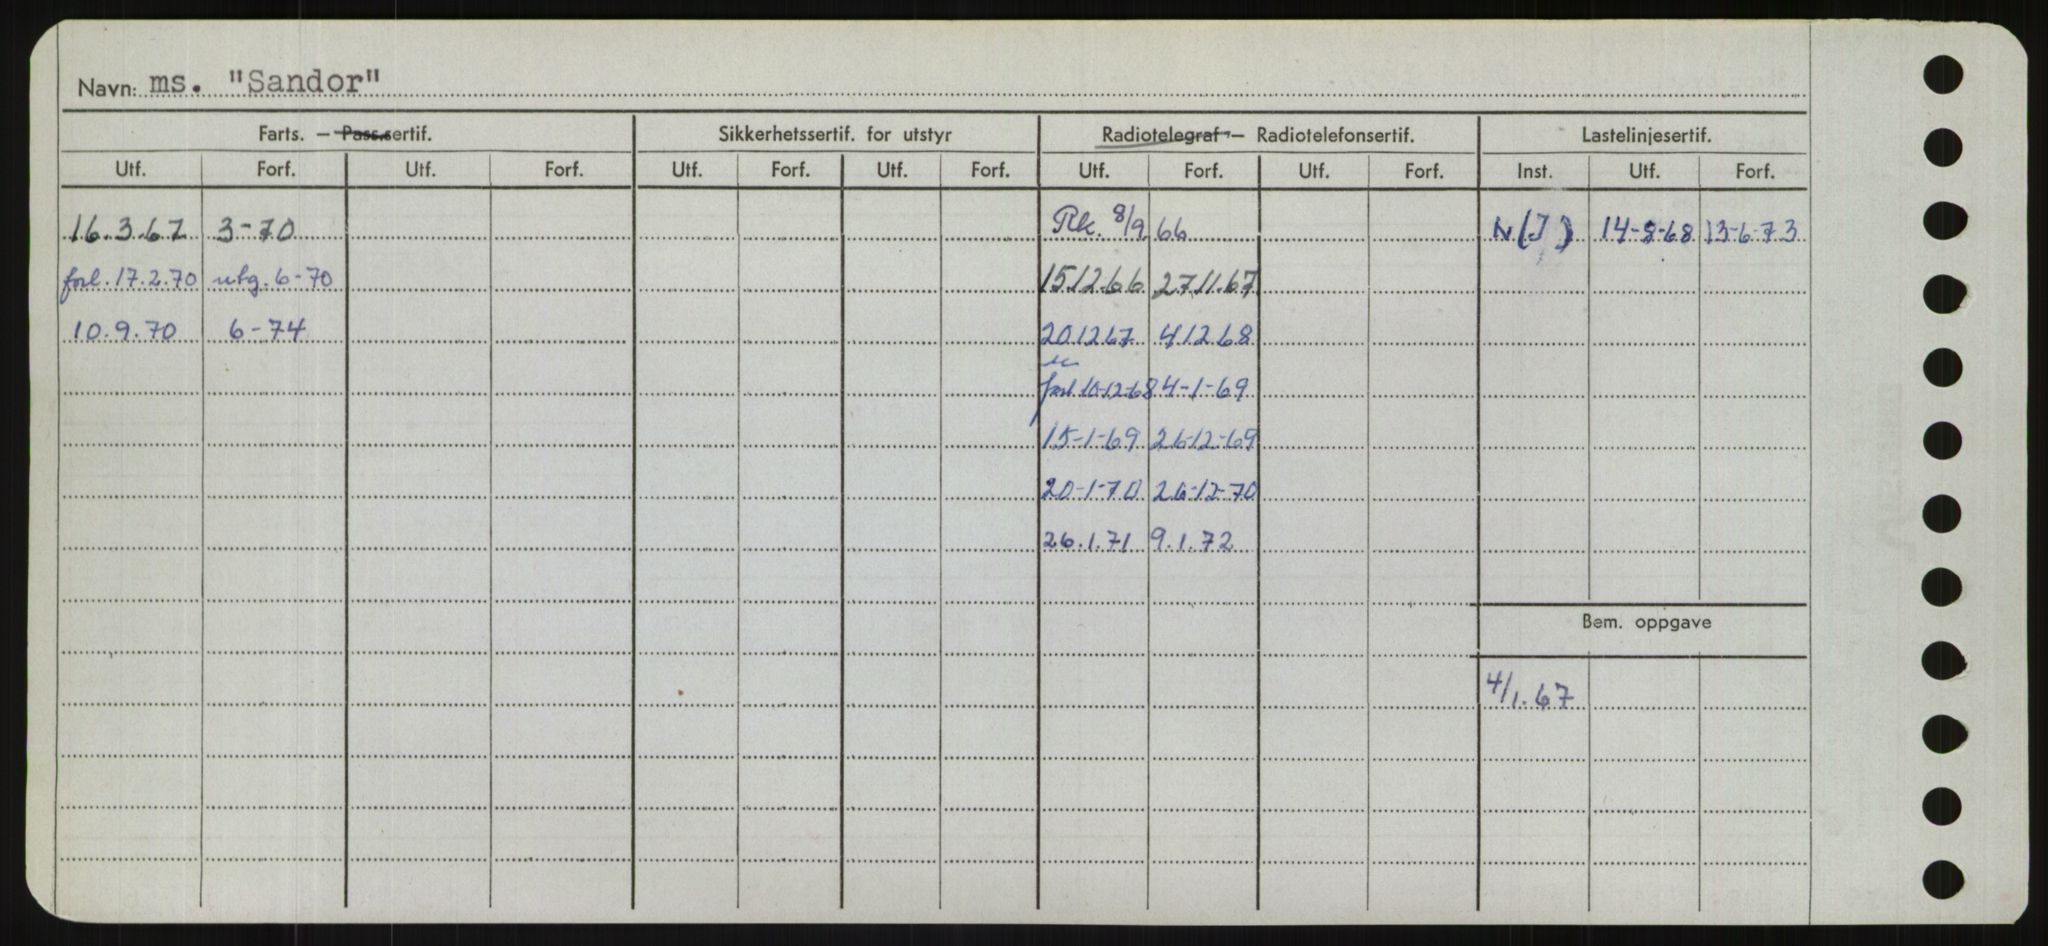 Navn: ms. "Sandor"
Farts. — Pass.sertif. Sikkerhetssertif. for utstyr Radiotelegraf- — Radiotelefonsertif. Lastelinjesertif.
Utf. Forf. Utf. Forf. Utf. Forf. Utf. Forf. Utf. Forf. Utf. Forf. Inst. Utf. Forf.
16.3.67 3-70 Rk. 8/9 66 N(J) 14-8-68 13-6-73
forl. 17.2.70 utg. 6-70 15.12.66 27.11.67
10.9.70 6-74 20 12 67 4 12 68
forl 10-12-68 4-1-69
15-1-69 26-12-69
20-1-70 26-12-70
26.1.71 9.1.72
Bem. oppgave
4/1.67